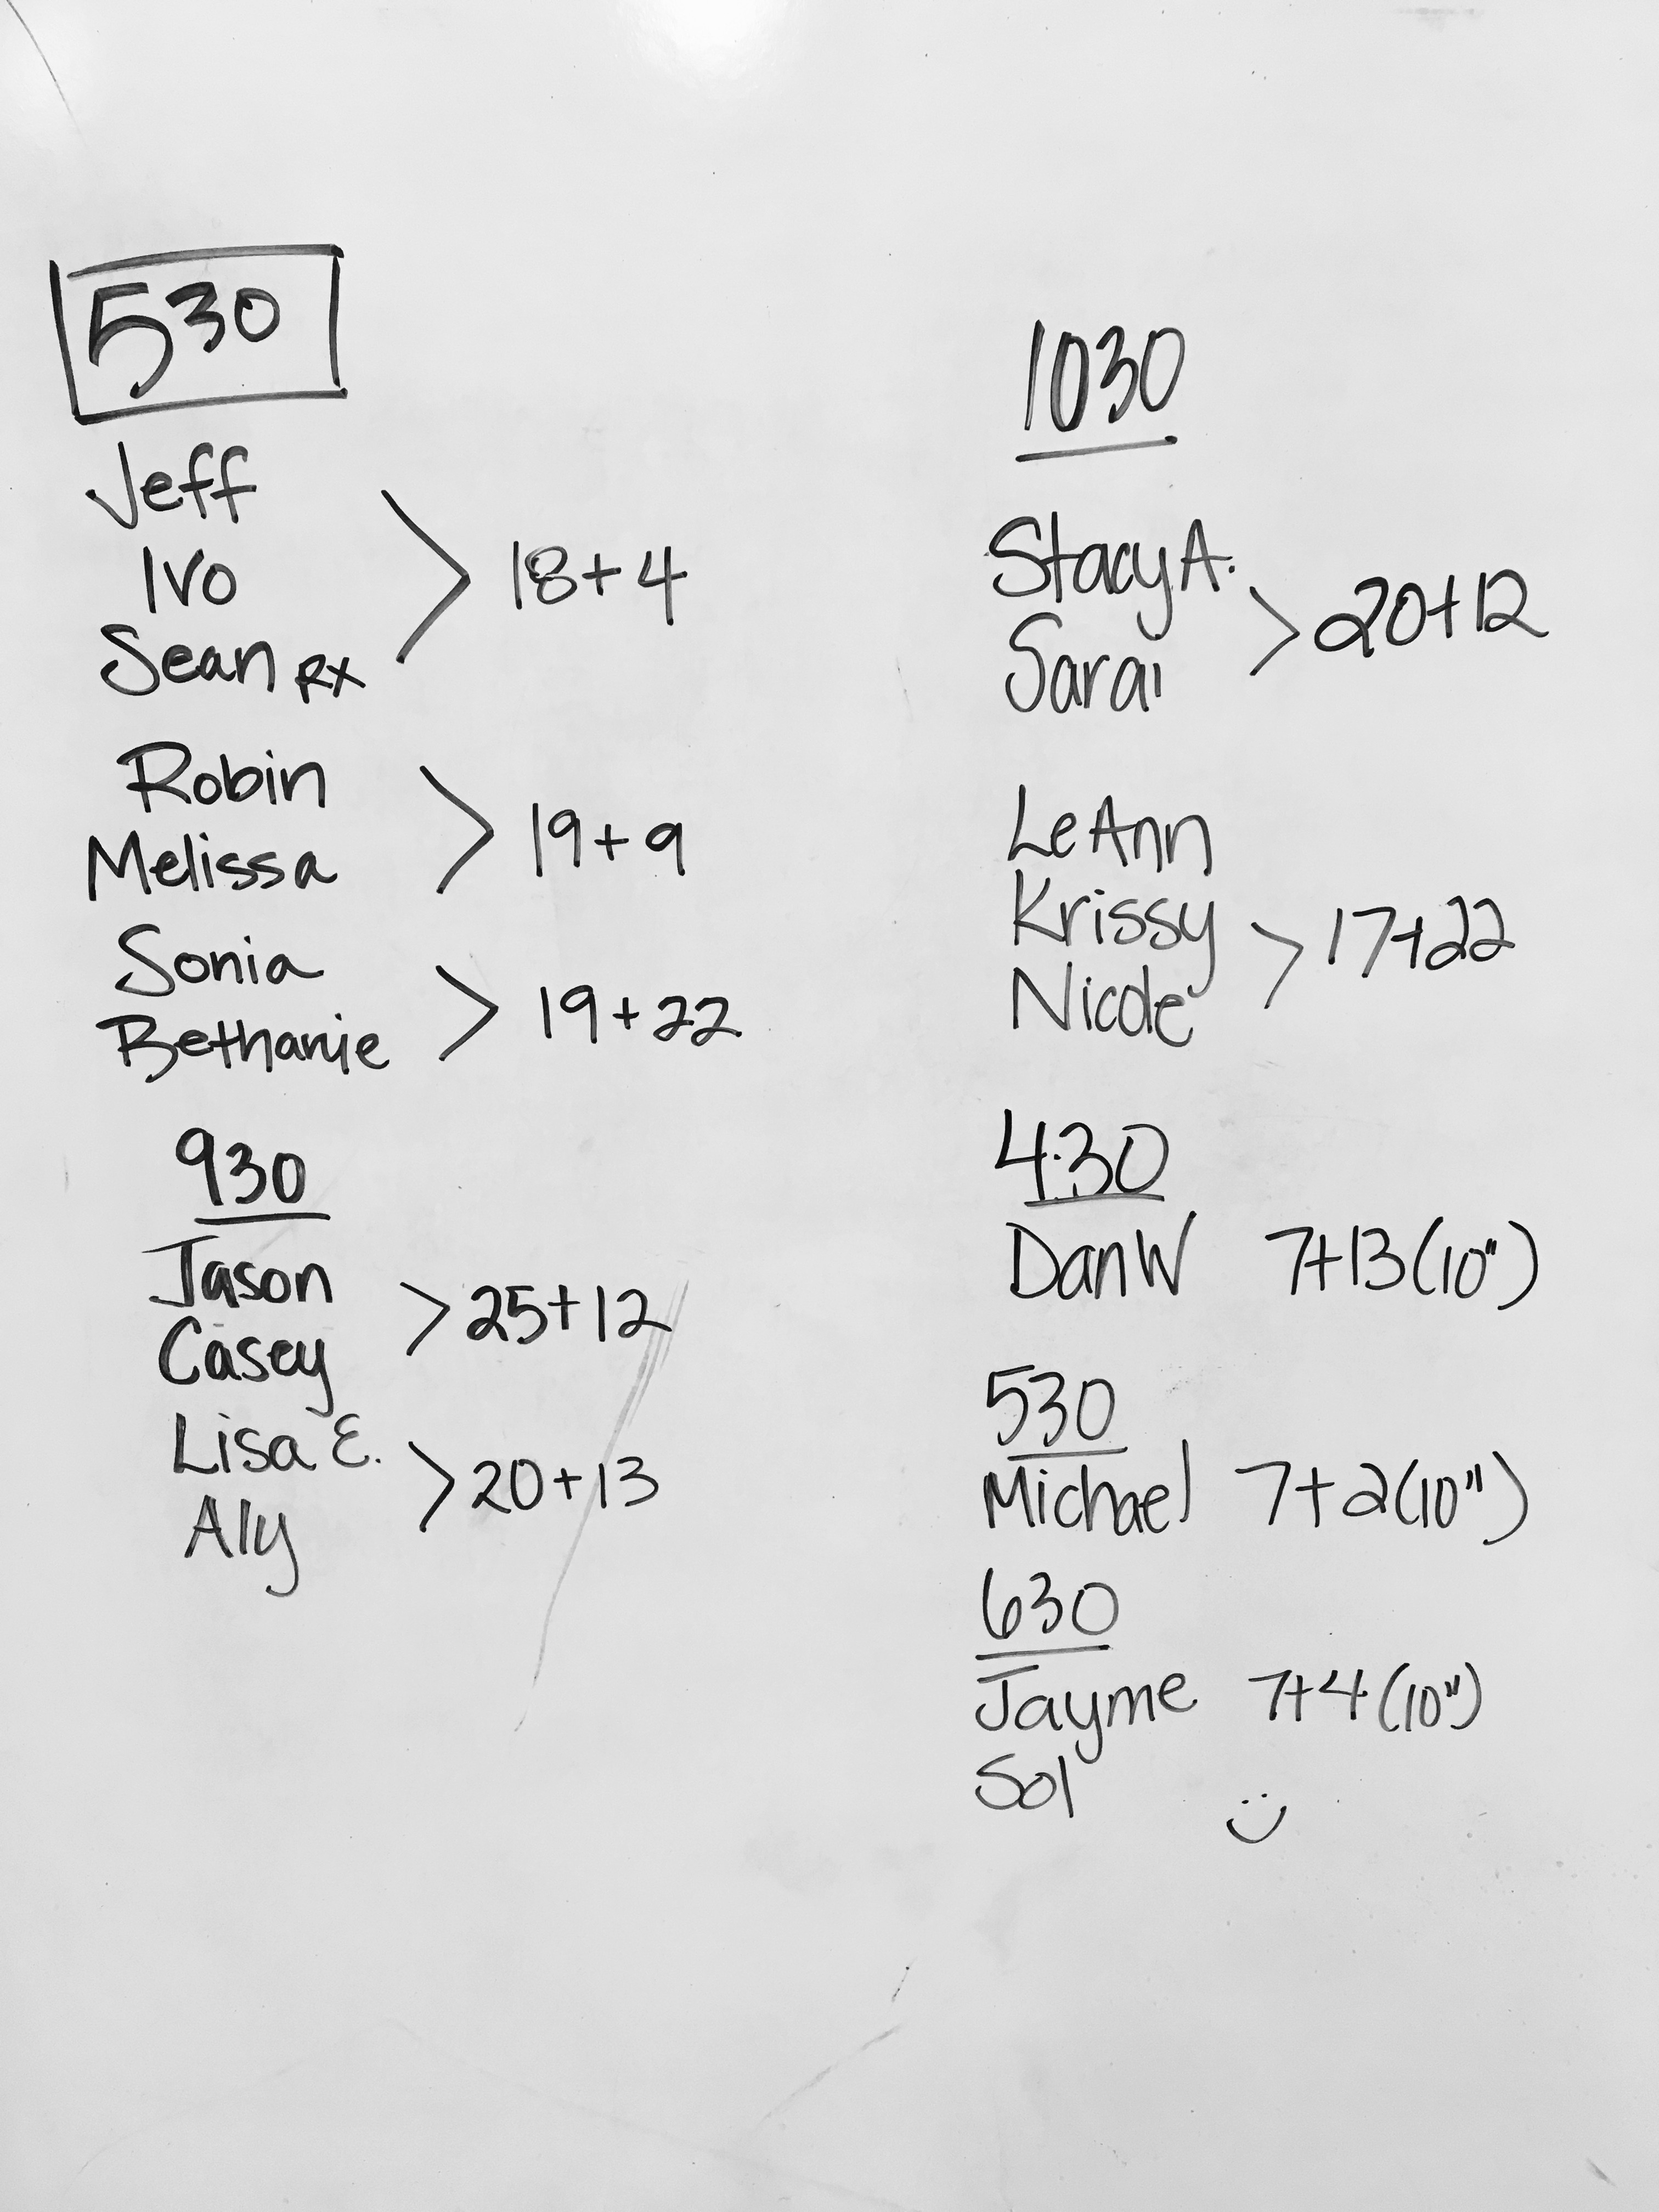 530
Jeff
Ivo
Sean RX
> 18+4
Robin
Melissa
> 19+9
Sonia
Bethanie
> 19+22
930
Jason
Casey
> 25+12
Lisa E.
Aly
> 20+13
1030
Stacy A.
Sarai
> 20+12
LeAnn
Krissy
Nicole
> 17+22
4:30
Dan W 7+13 (10")
530
Michael 7+2 (10")
630
Jayme 7+4 (10")
Sol :)